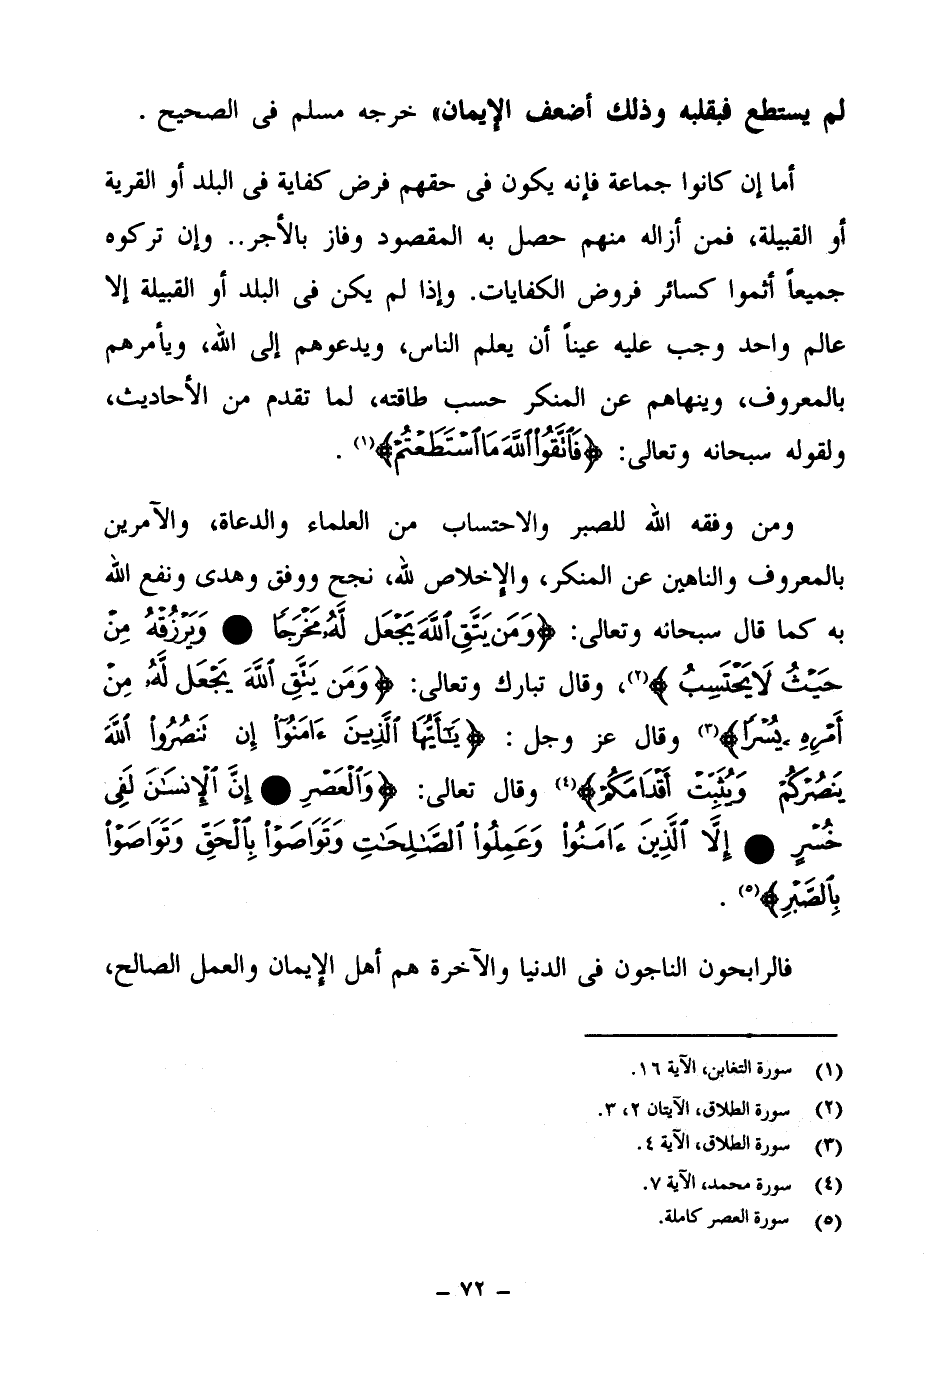 لم يستطع فبقلبه وذلك أضعف الإيمان» خرجه مسلم فى الصحيح .
أما إن كانوا جماعة فإنه يكون فى حقهم فرض كفاية فى البلد أو القرية
أو القبيلة، فمن أزاله منهم حصل به المقصود وفاز بالأجر.. وإن تركوه
جميعاً أثموا كسائر فروض الكفايات. وإذا لم يكن فى البلد أو القبيلة إلا
عالم واحد وجب عليه عيناً أن يعلم الناس، ويدعوهم إلى الله، ويأمرهم
بالمعروف، وينهاهم عن المنكر حسب طاقته، لما تقدم من الأحاديث،
ولقوله سبحانه وتعالى: ﴿فَٱتَّقُوا۟ ٱللَّهَ مَا ٱسۡتَطَعۡتُمۡ﴾(١) .
ومن وفقه الله للصبر والاحتساب من العلماء والدعاة، والآمرين
بالمعروف والناهين عن المنكر، والإخلاص لله، نجح ووفق وهدى ونفع الله
به كما قال سبحانه وتعالى: ﴿وَمَن يَتَّقِ ٱللَّهَ يَجۡعَل لَّهُۥ مَخۡرَجٗا ● وَيَرۡزُقۡهُ مِنۡ
حَيۡثُ لَا يَحۡتَسِبُ﴾(٢)، وقال تبارك وتعالى: ﴿وَمَن يَتَّقِ ٱللَّهَ يَجۡعَل لَّهُۥ مِنۡ
أَمۡرِهِۦ يُسۡرٗا﴾(٣) وقال عز وجل : ﴿يَـٰٓأَيُّهَا ٱلَّذِينَ ءَامَنُوٓا۟ إِن تَنصُرُوا۟ ٱللَّهَ
يَنصُرۡكُمۡ وَيُثَبِّتۡ أَقۡدَامَكُمۡ﴾(٤) وقال تعالى: ﴿وَٱلۡعَصۡرِ ● إِنَّ ٱلۡإِنسَـٰنَ لَفِى
خُسۡرٍ ● إِلَّا ٱلَّذِينَ ءَامَنُوا۟ وَعَمِلُوا۟ ٱلصَّـٰلِحَـٰتِ وَتَوَاصَوۡا۟ بِٱلۡحَقِّ وَتَوَاصَوۡا۟
بِٱلصَّبۡرِ﴾(٥) .
فالرابحون الناجون فى الدنيا والآخرة هم أهل الإيمان والعمل الصالح،
(١) سورة التغابن، الآية ١٦.
(٢) سورة الطلاق، الآيتان ٢، ٣.
(٣) سورة الطلاق، الآية ٤.
(٤) سورة محمد، الآية ٧.
(٥) سورة العصر كاملة.
- ٧٢ -